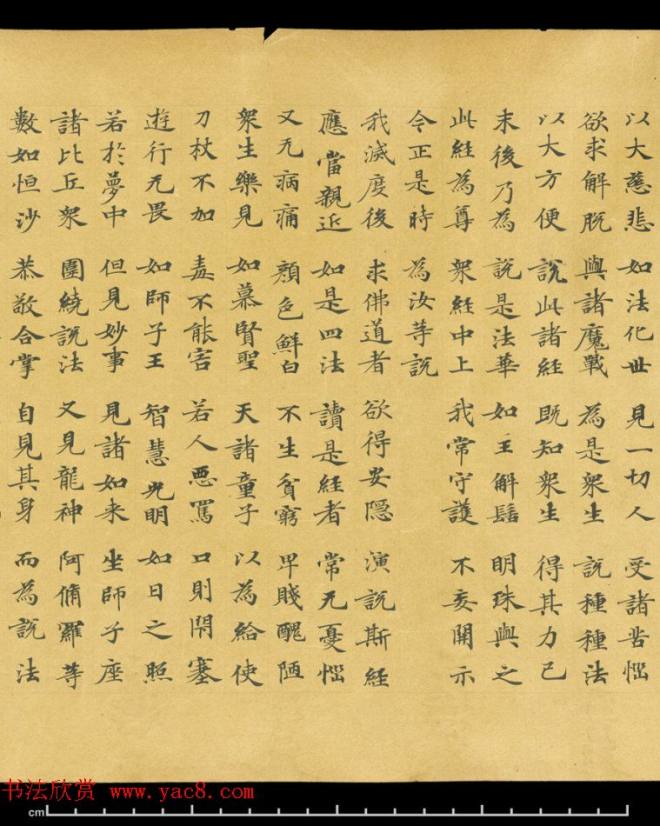 以大慈悲 如法化世 見一切人 受諸苦惱
欲求解脫 與諸魔戰 為是衆生 說種種法
以大方便 說此諸經 既知衆生 得其力已
末後乃為 說是法華 如王解髻 明珠與之
此經為尊 衆經中上 我常守護 不妄開示
令正是時 為汝等說
我滅度後 求佛道者 欲得安隱 演說斯經
應當親近 如是四法 讀是經者 常无憂惱
又无病痛 顏色鮮白 不生貧窮 卑賤醜陋
衆生樂見 如慕賢聖 天諸童子 以為給使
刀杖不加 毒不能害 若人惡罵 口則閇塞
遊行无畏 如師子王 智慧光明 如日之照
若於夢中 但見妙事 見諸如来 坐師子座
諸比丘衆 圍繞說法 又見龍神 阿脩羅等
數如恒沙 恭敬合掌 自見其身 而為說法
书法欣赏 www.yac8.com
cm